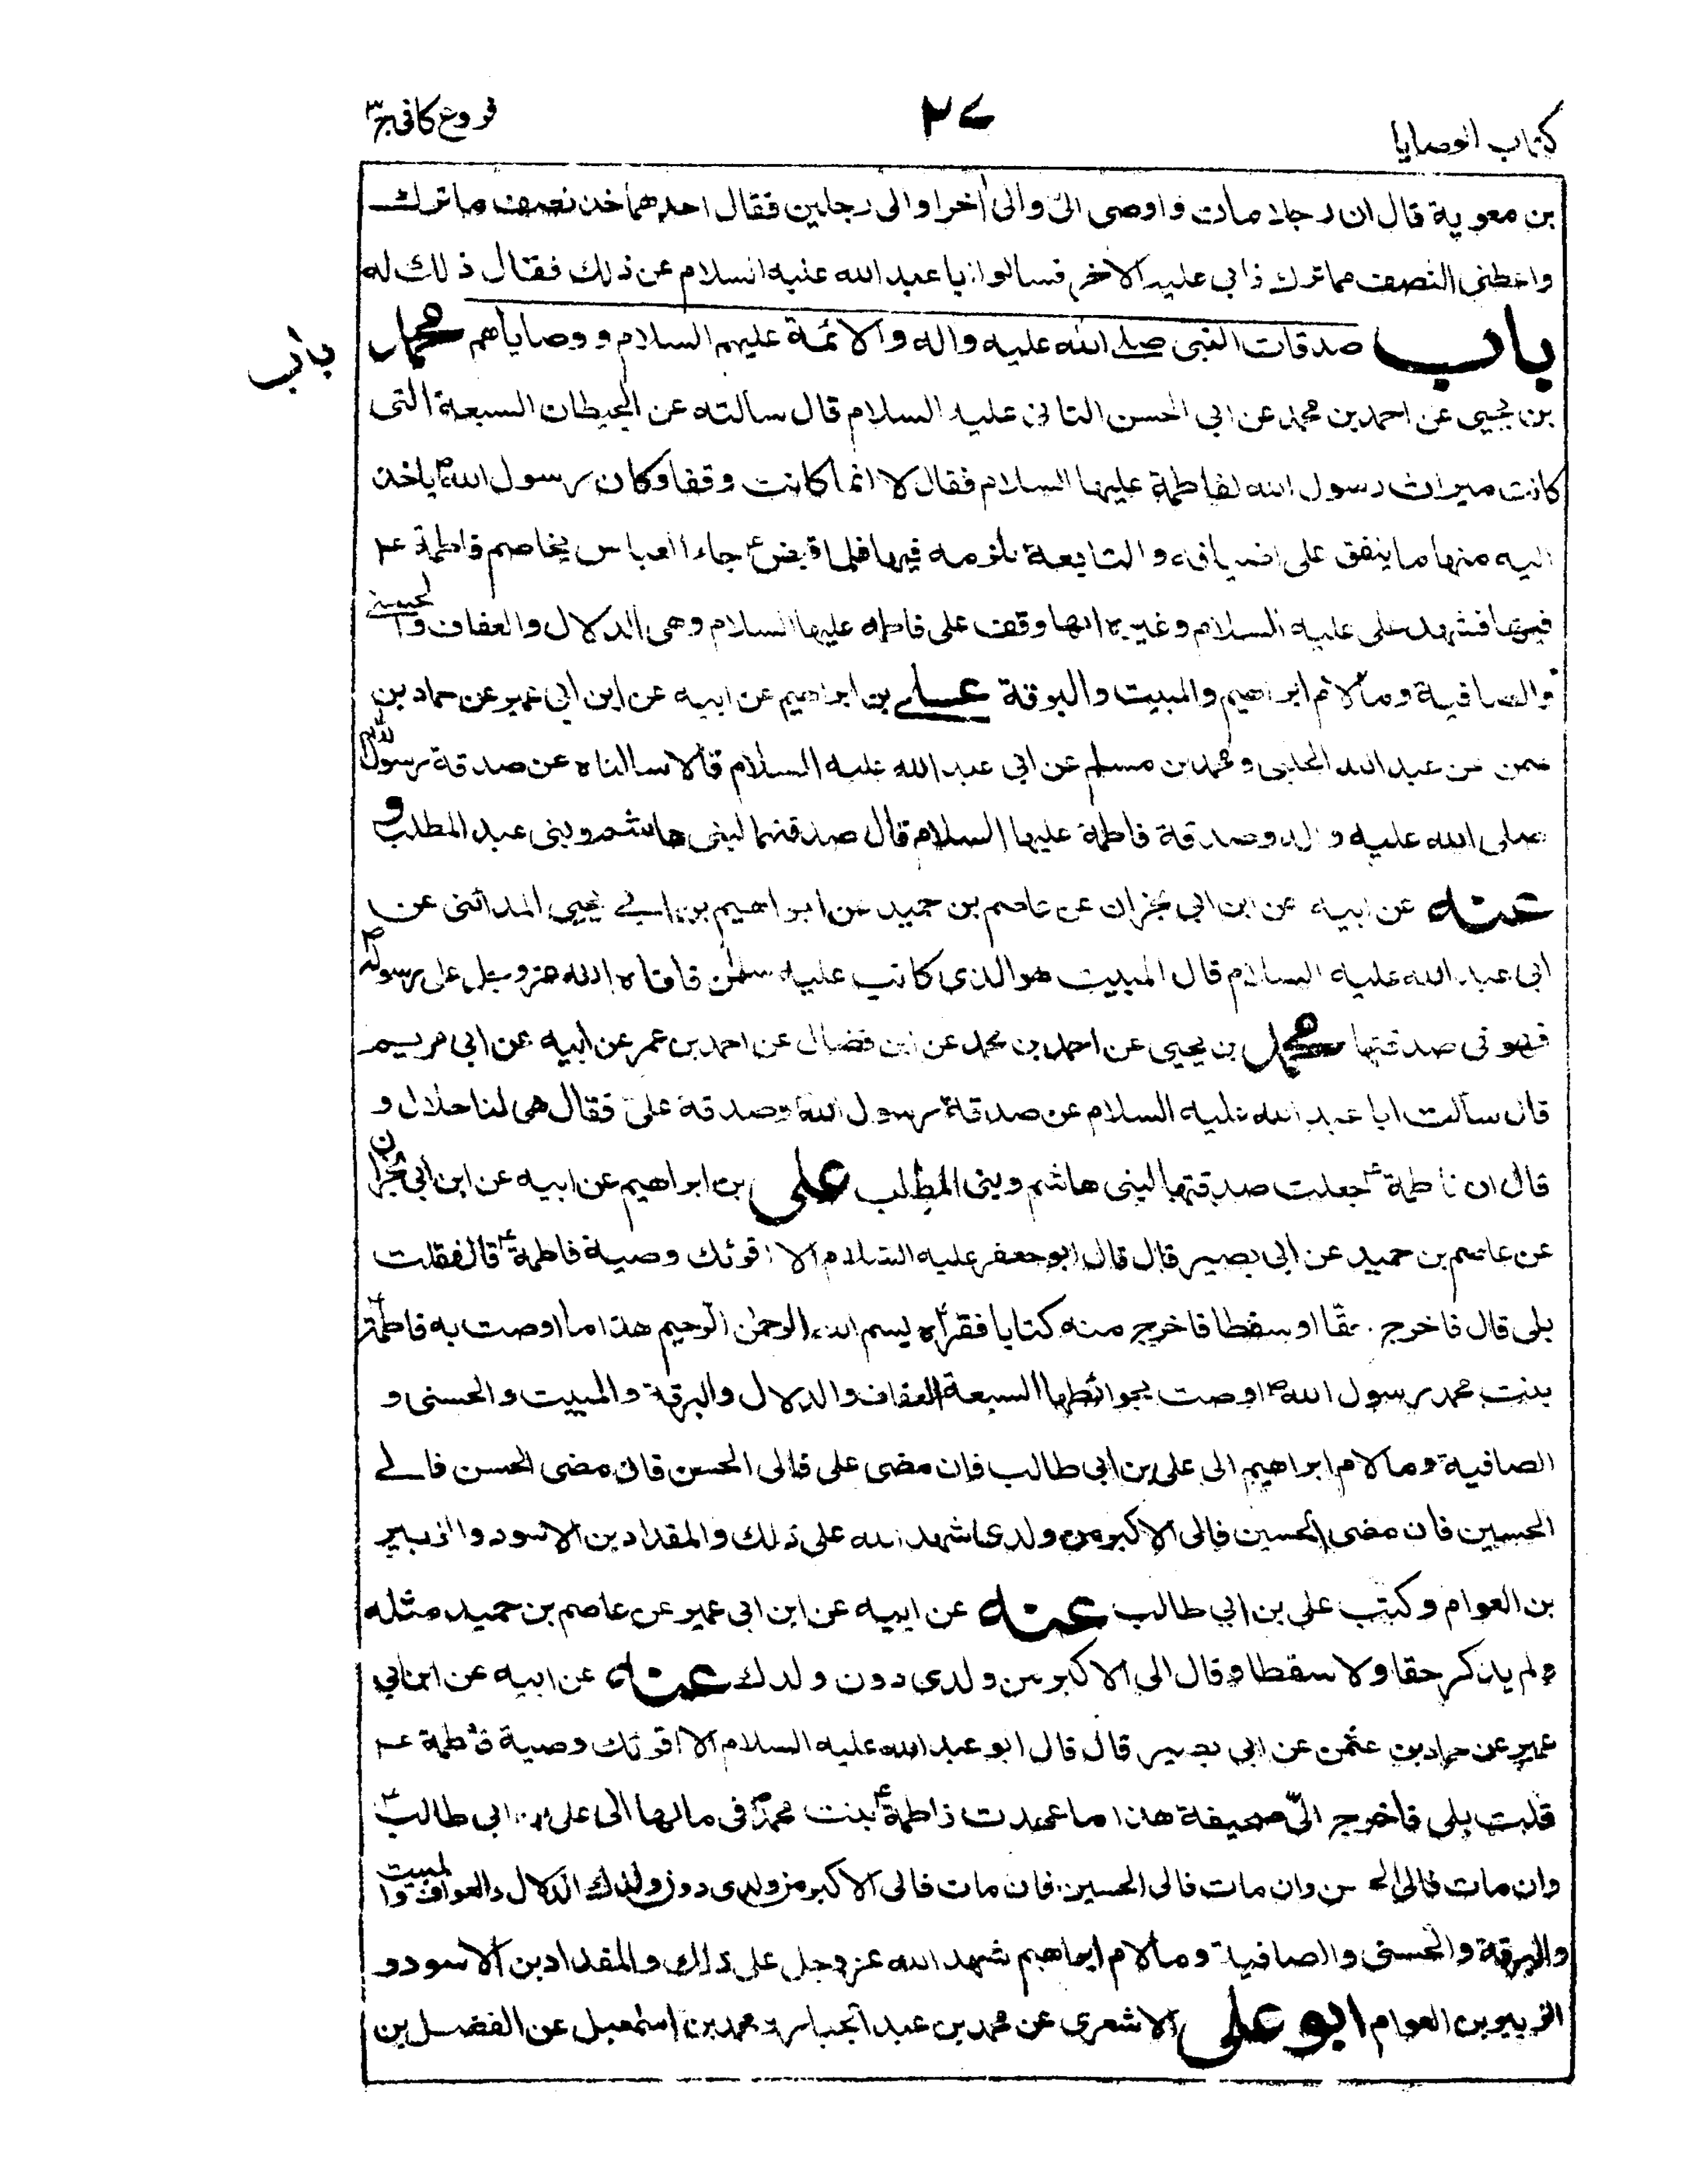 كتاب الوصايا
٢٧
فروع كافى ج٣
بن معوية قال ان رجلا مات واوصى الىّ والى آخر او الى رجلين فقال احدهما خذ نصف ما ترك
واعطنى النصف مما ترك فابى عليه الاخر فسالوا ابا عبد الله عليه السلام عن ذلك فقال ذلك له
باب صدقات النبى صلى الله عليه واله والائمة عليهم السلام و وصاياهم محمد
باب
بن يحيى عن احمد بن محمد عن ابي الحسن الثانى عليه السلام قال سالته عن الحيطان السبعة التى
كانت ميراث رسول الله لفاطمة عليها السلام فقال لا انما كانت وقفا وكان رسول اللهص ياخذ
اليه منها ما ينفق على اضيافه و التابعة تلزمه فيها فلما قبض ع جاء العباس يخاصم فاطمة ع
فيها فشهد على عليه السلام وغيره انها وقف على فاطمه عليها السلام وهى الدلال والعفاف والحسنى
والصافية وما لام ابراهيم والمبيت والبرقة على بن ابراهيم عن ابيه عن ابن ابي عمير عن حماد بن
عثمن عن عبد الله الحلبى و محمد بن مسلم عن ابي عبد الله عليه السلام قالا سالناه عن صدقة رسول الله
صلى الله عليه واله وصدقة فاطمة عليها السلام قال صدقتهما لبنى هاشم وبنى عبد المطلب و
عنه عن ابيه عن ابن ابي نجران عن عاصم بن حميد عن ابراهيم بن ابى يحيى المدائنى عن
ابى عبد الله عليه السلام قال المبيت هو الذى كاتب عليه سلمن فافاه الله عز وجل على رسوله ص
فهو فى صدقتها محمد بن يحيى عن احمد بن محمد عن ابن فضال عن احمد بن عمر عن ابيه عن ابى مريم
قال سالت ابا عبد الله عليه السلام عن صدقة رسول اللهص وصدقة علىّ فقال هى لنا حلال و
قال ان فاطمة ع جعلت صدقتها لبنى هاشم وبنى المطلب على بن ابراهيم عن ابيه عن ابن ابي نجران
عن عاصم بن حميد عن ابى بصير قال قال ابو جعفر عليه السلام الا اقرئك وصية فاطمة ع قال فقلت
بلى قال فاخرج حقّا او سفطا فاخرج منه كتابا فقرأه بسم الله الرحمن الرحيم هذا ما اوصت به فاطمة
بنت محمد رسول الله ص اوصت بحوائطها السبعة العفاف والدلال والبرقة والمبيت والحسنى و
الصافية وما لام ابراهيم الى على بن ابى طالب فان مضى على فالى الحسن فان مضى الحسن فالى
الحسين فان مضى الحسين فالى الاكبر من ولدى شهد الله على ذلك والمقداد بن الاسود والزبير
بن العوام وكتب على بن ابي طالب عنه عن ابيه عن ابن ابى عمير عن عاصم بن حميد مثله
ولم يذكر حقا ولا سفطا وقال الى الاكبر من ولدى دون ولدك عنه عن ابيه عن ابن ابي
عمير عن حماد بن عثمن عن ابى بصير قال قال ابو عبد الله عليه السلام الا اقرئك وصية فاطمة ع
قلت بلى فاخرج الىّ صحيفة هذا ما عهدت فاطمة ع بنت محمد ص فى مالها الى على بن ابى طالب ع
وان مات فالى الحسن وان مات فالى الحسين فان مات فالى الاكبر من ولدى دون ولدك الدلال والعواف والمبيت
والبرقة والحسنى والصافية وما لام ابراهيم شهد الله عز وجل على ذلك والمقداد بن الاسود و
الزبير بن العوام ابو على الاشعرى عن محمد بن عبد الجبار و محمد بن اسمعيل عن الفضل بن